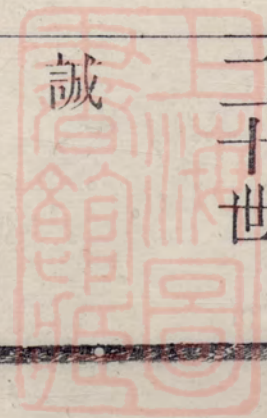 二十世
誠
上海圖
書館藏